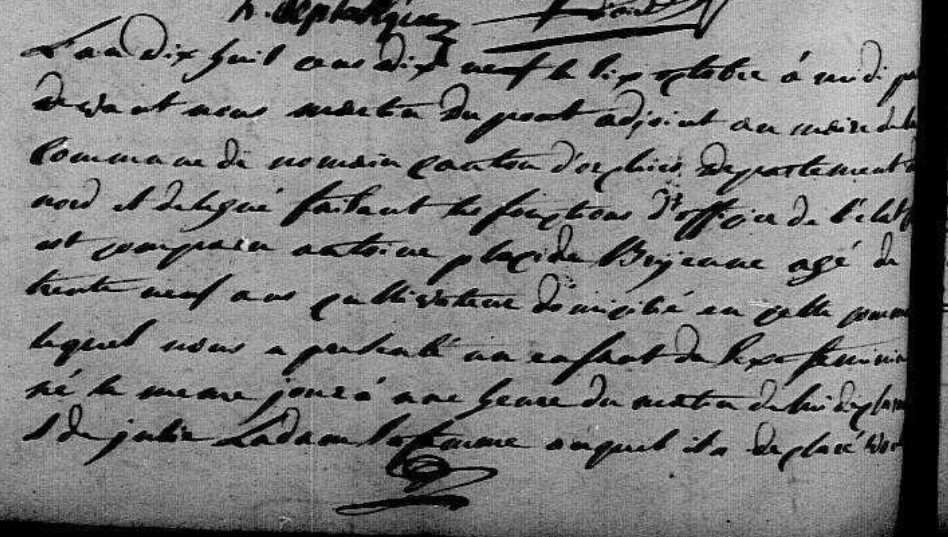 h. deplanque
L'an dix huit cens dix neuf le six octobre à midi par
devant nous martin Dupont adjoint au maire de la
Commune de nomain canton d'orchies, departement du
nord et delegué faisant les fonctions d'officier de l'état
est comparu antoine placide Bejenne agé de
trente neuf ans cultivateur domicilié en cette comm
lequel nous a presenté un enfant du sexe feminin
né le meme jour à une heure du matin de lui declarant
et de julie Ladam sa femme auquel il a declaré vou